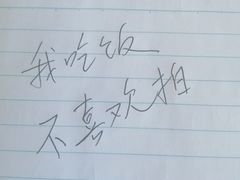 我吃饭
不喜欢拍